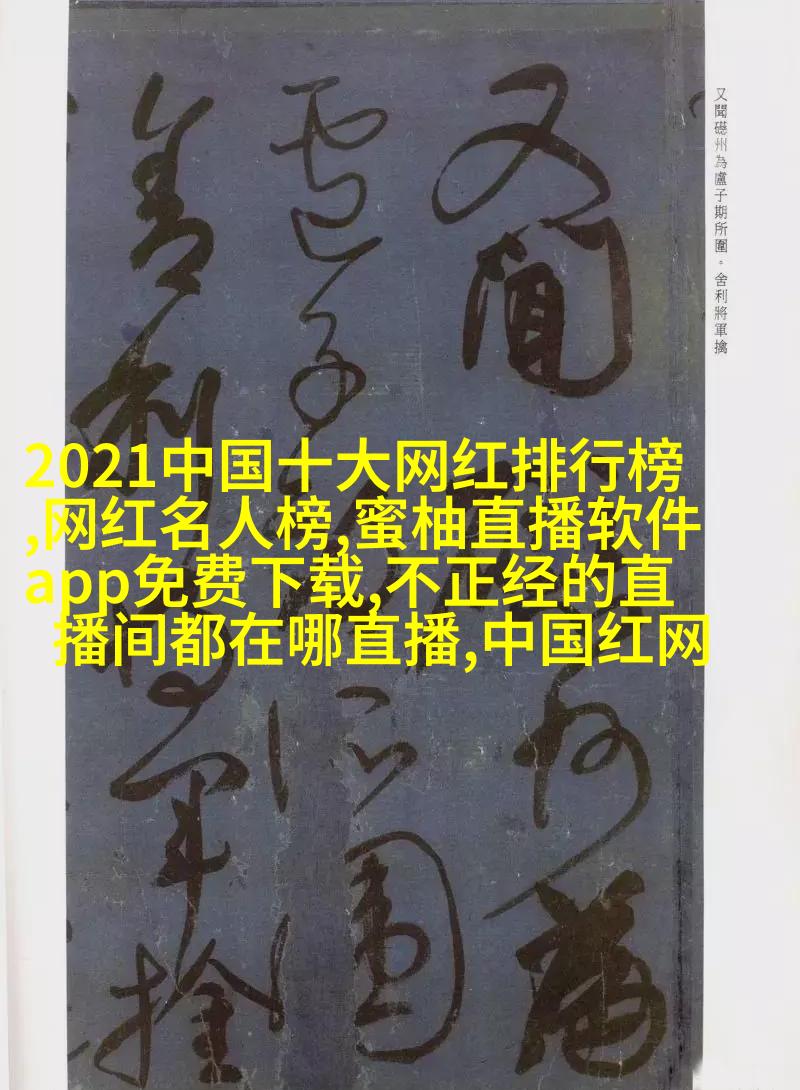 又聞礠州為盧子期所圍。舍利將軍擒
又聞 州為
盧子 所圍
舍利將軍擒
2021中国十大网红排行榜
,网红名人榜,蜜柚直播软件
app免费下载,不正经的直
播间都在哪直播,中国红网